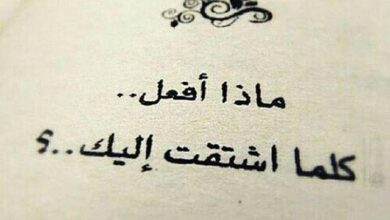 ماذا أفعل..
كلما اشتقت إليك..؟